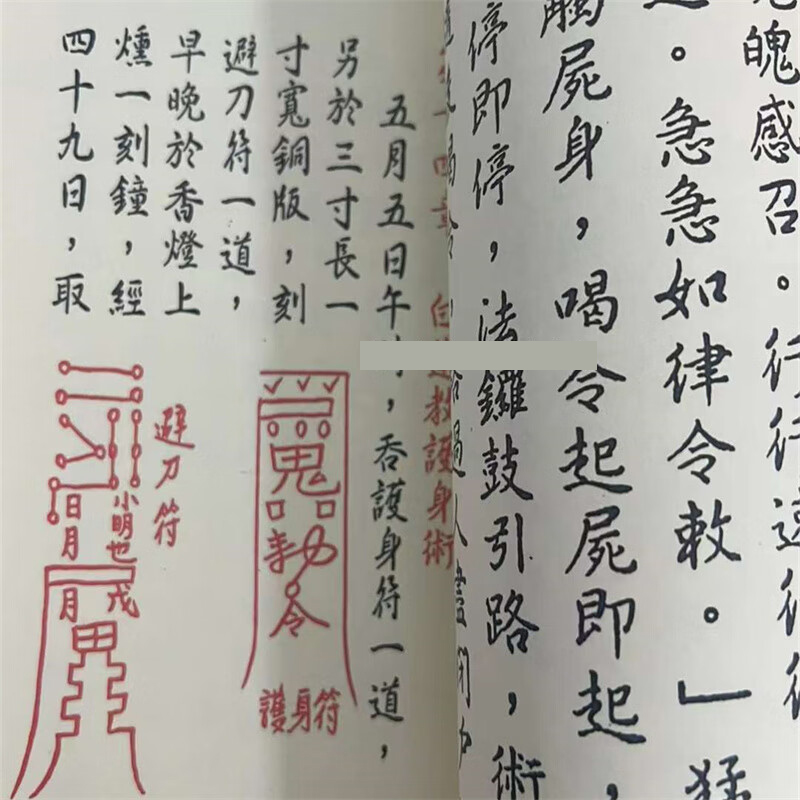 魄感召。行行速行行
。急急如律令敕。」猛
觸屍身，喝令起屍即起，
停即停，法鑼鼓引路，術
教護身術
五月五日午，吞護身符一道，
另於三寸長一
寸寬銅版，刻
避刀符一道，
早晚於香燈上
燻一刻鐘，經
四十九日，取
鬼
勅令
護身符
避刀符
小明也
日月
月
戊